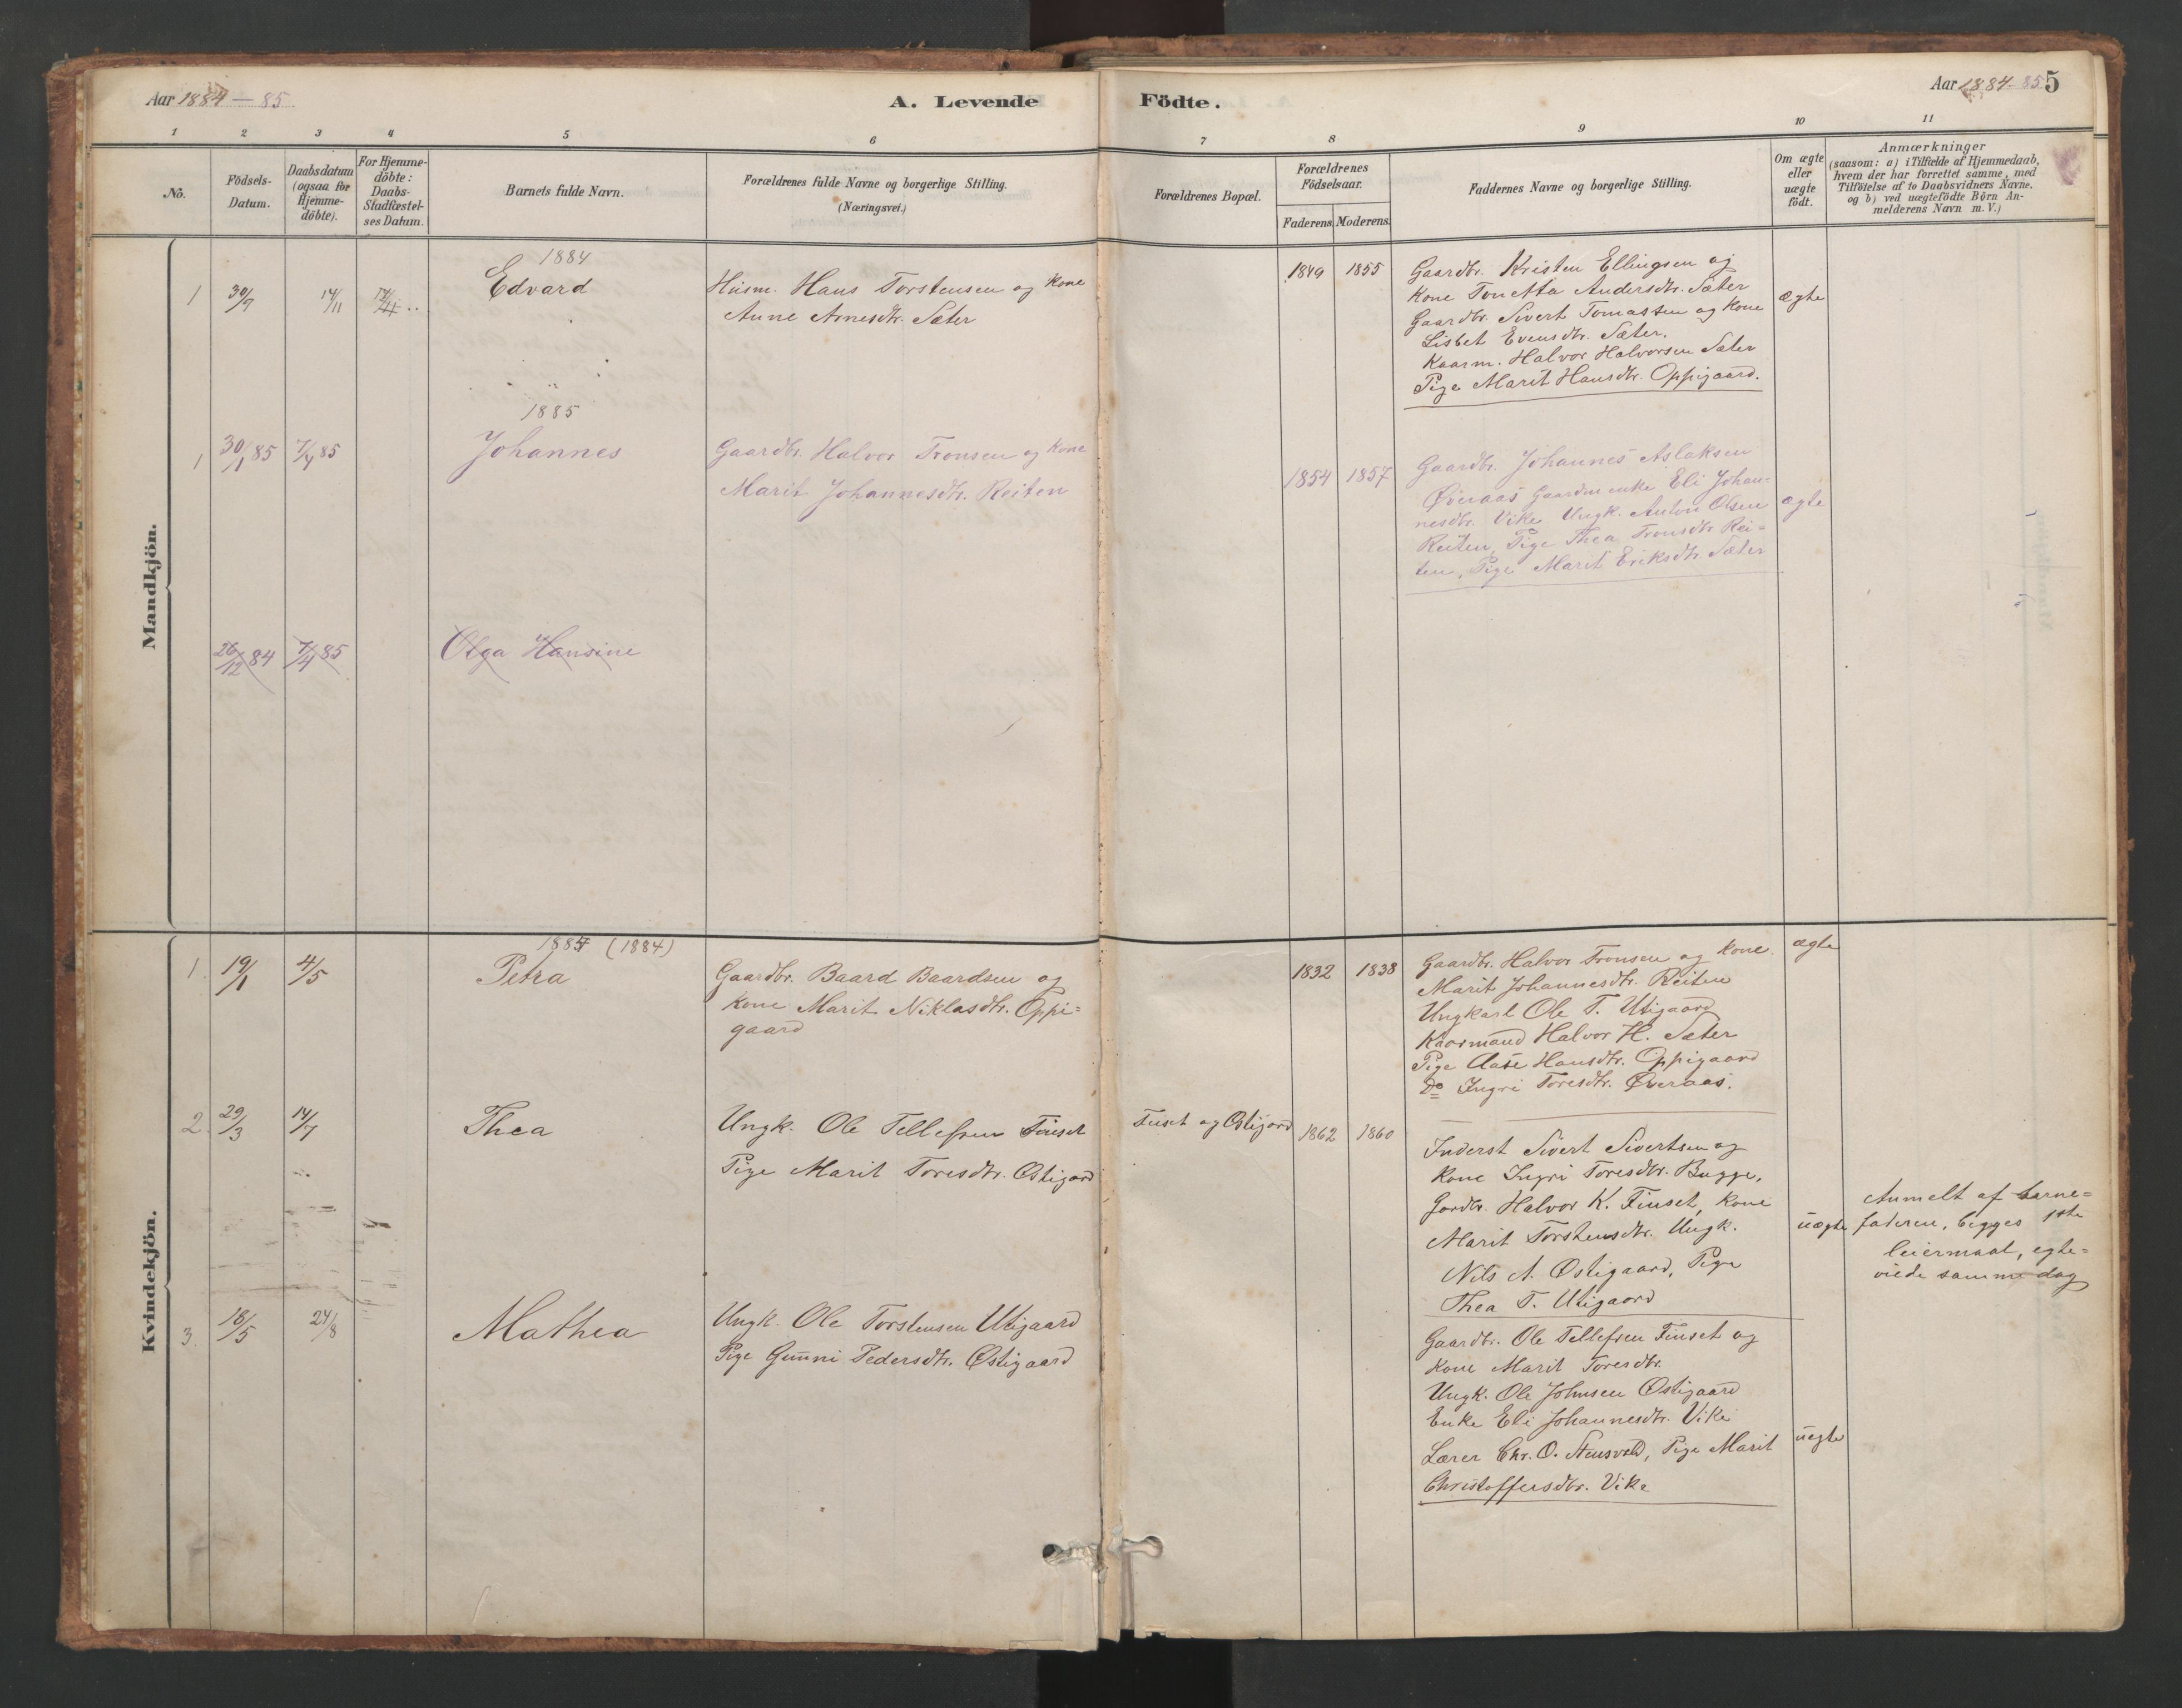 Aar 1884 – 85
A. Levende
Födte.
Aar 1884 - 85 5
1 2 3 4 5 6 7 8 9 10 11
No.
Födsels-
Datum.
Daabsdatum
(ogsaa for
Hjemme-
döbte).
For Hjemme-
döbte:
Daabs-
Stadfæstel-
ses Datum.
Barnets fulde Navn.
Forældrenes fulde Navne og borgerlige Stilling.
(Næringsvei.)
Forældrenes Bopæl.
Forældrenes
Födselsaar.
Faderens. Moderens.
Faddernes Navne og borgerlige Stilling.
Om ægte
eller
uægte
födt.
Anmærkninger
(saasom: a) i Tilfælde af Hjemmedaab,
hvem der har forrettet samme, med
Tilföielse af to Daabsvidners Navne.
og b) ved uægtefödte Börn An-
melderens Navn m. V.)
Mandkjön.
1884
1 30/7 14/11 14/11
Edvard
Husm. Hans Torstensen og Kone
Anne Arnesdtr. Sæter
1849 1855
Gaardbr. Kristen Ellingsen og
Kone Tonetta Andersdtr. Sæter
Gaardbr. Sivert Tomassen og Kone
Lisbet Evensdtr. Sæter.
Kaarm. Halvor Halvorsen Sæter
Pige Marit Hansdtr. Oppigaard.
ægte
1885
1 30/1 85 7/4 85
Johannes
Gaardbr. Halvor Tronsen og Kone
Marit Johannesdtr. Reiten
1854 1857
Gaardbr. Johannes Aslaksen
Øveraas Gaardmenke Eli Johan=
nesdtr. Vike Ungk. Anton Olsen
Reiten, Pige Thea Tronsdtr Rei=
ten, Pige Marit Eriksdtr. Sæter
ægte
26/12 84 7/4 85
Olga Hansine
Kvindekjön.
1884 (1884)
1. 19/1 4/5
Petra
Gaardbr. Baard Baardsen og
Kone Marit Niklasdtr. Oppi=
gaard
1832 1838
Gaardbr. Halvor Tronsen og Kone
Marit Johannesdtr. Reiten
Ungkarl Ole T. Utigaard
Kaarmand Halvor H. Sæter
Pige Aase Hansdtr. Oppigaard
Do Ingri Toresdtr. Øveraas.
ægte
2. 29/3 14/7
Thea
Ungk. Ole Tellefsen Finset
Pige Marit Toresdtr. Østigard
Finset og Østigard
1862 1860
Inderst Sivert Sivertsen og
Kone Ingri Toresdtr. Bugge,
Gardbr. Halvor K. Finset, Kone
Marit Torstensdtr. Ungk.
Nils A. Østigaard, Pige
Thea T. Utigaard
uægte
Anmelt af barne=
faderen, begges 1ste
leiermaal, egte=
viede samme dag
3. 18/5 24/8
Mathea
Ungk. Ole Torstensen Utigaard
Pige Gunni Pedersdtr. Østigaard
Gaardbr. Ole Tellefsen Finset og
Kone Marit Toresdtr.
Ungk. Ole Johnsen Østigaard
Enke Eli Johannesdtr. Vike
Lærer Chr. O. Stensvold, Pige Marit
Christoffersdtr. Vike
uegte